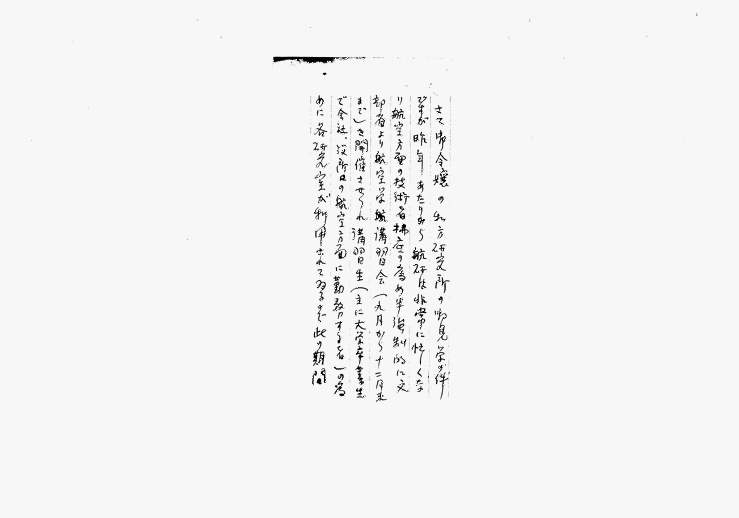 さて御令嬢の当方研究所の御見学の件
ですが昨年あたりから航研は非常に忙しくな
り航空方面の技術者養成の為め半強制的に文
部省より航空学術講習会（九月から十二月末
まで）を開催させられ講習生（主に大学卒業生
で会社、役所の航空方面に勤務する者）の為
めに各研究室が利用されて居るので此の期間